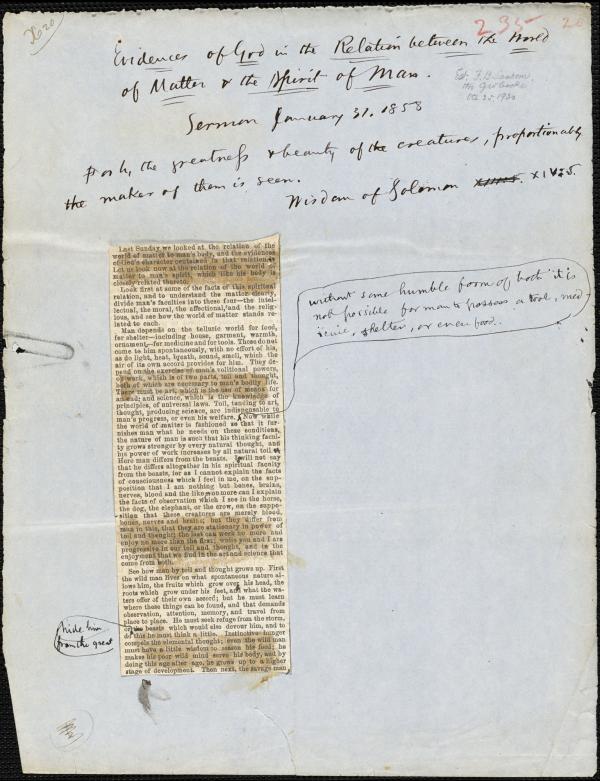 235
20
Evidences of God in the Relation between the World
of Matter & the Spirit of Man.
Sermon January 31. 1858
For by the greatness & beauty of the creatures, proportionably
the maker of them is seen.
Wisdom of Solomon XIII. 5.
Last Sunday we looked at the relation of the
world of matter to man's body, and the evidences
of God's character contained in that relation.
Let us look now at the relation of the world of
matter to man's spirit, which like his body is
closely related thereto.
Look first at some of the facts of this spiritual
relation, and to understand the matter clearly,
divide man's faculties into these four—the intel-
lectual, the moral, the affectional, and the relig-
ious, and see how the world of matter stands re-
lated to each.
Man depends on the telluric world for food,
for shelter—including house, garment, warmth,
ornament,—for medicine and for tools. These do not
come to him spontaneously, with no effort of his,
as do light, heat, breath, sound, smell, which the
air of its own accord provides for him. They de-
pend on the exercise of man's volitional powers,
on work, which is of two parts, toil and thought,
both of which are necessary to man's bodily life.
There must be art, which is the use of means for
an end; and science, which is the knowledge of
principles, of universal laws. Toil, tending to art,
thought, producing science, are indispensable to
man's progress, or even his welfare. Now while
the world of matter is fashioned so that it fur-
nishes man what he needs on these conditions,
the nature of man is such that his thinking facul-
ty grows stronger by every natural thought, and
his power of work increases by all natural toil.
Here man differs from the beasts. I will not say
that he differs altogether in his spiritual faculty
from the beasts, for as I cannot explain the facts
of consciousness which I feel in me, on the sup-
position that I am nothing but bones, brains,
nerves, blood and the like, no more can I explain
the facts of observation which I see in the horse,
the dog, the elephant, or the crow, on the suppo-
sition that these creatures are merely blood,
bones, nerves and brains; but they differ from
man in this, that they are stationary in power of
toil and thought; the last can work no more and
enjoy no more than the first; while you and I are
progressive in our toil and thought, and in the
enjoyment that we find in the art and science that
come from both.
See how man by toil and thought grows up. First
the wild man lives on what spontaneous nature al-
lows him, the fruits which grow over his head, the
roots which grow under his feet, and what the wa-
ters offer of their own accord; but he must learn
where these things can be found, and that demands
observation, attention, memory, and travel from
place to place. He must seek refuge from the storm,
the beasts which would also devour him, and to
do this he must think a little. Instinctive hunger
compels the elemental thought; even the wild man
must have a little wisdom to season his food; he
makes his poor wild mind serve his body, and by
doing this age after age, he grows up to a higher
stage of development. Then next, the savage man
without some humble form of both it is
not possible for man to possess a tool, med
icine, shelter, or even food.
hide him
from the great